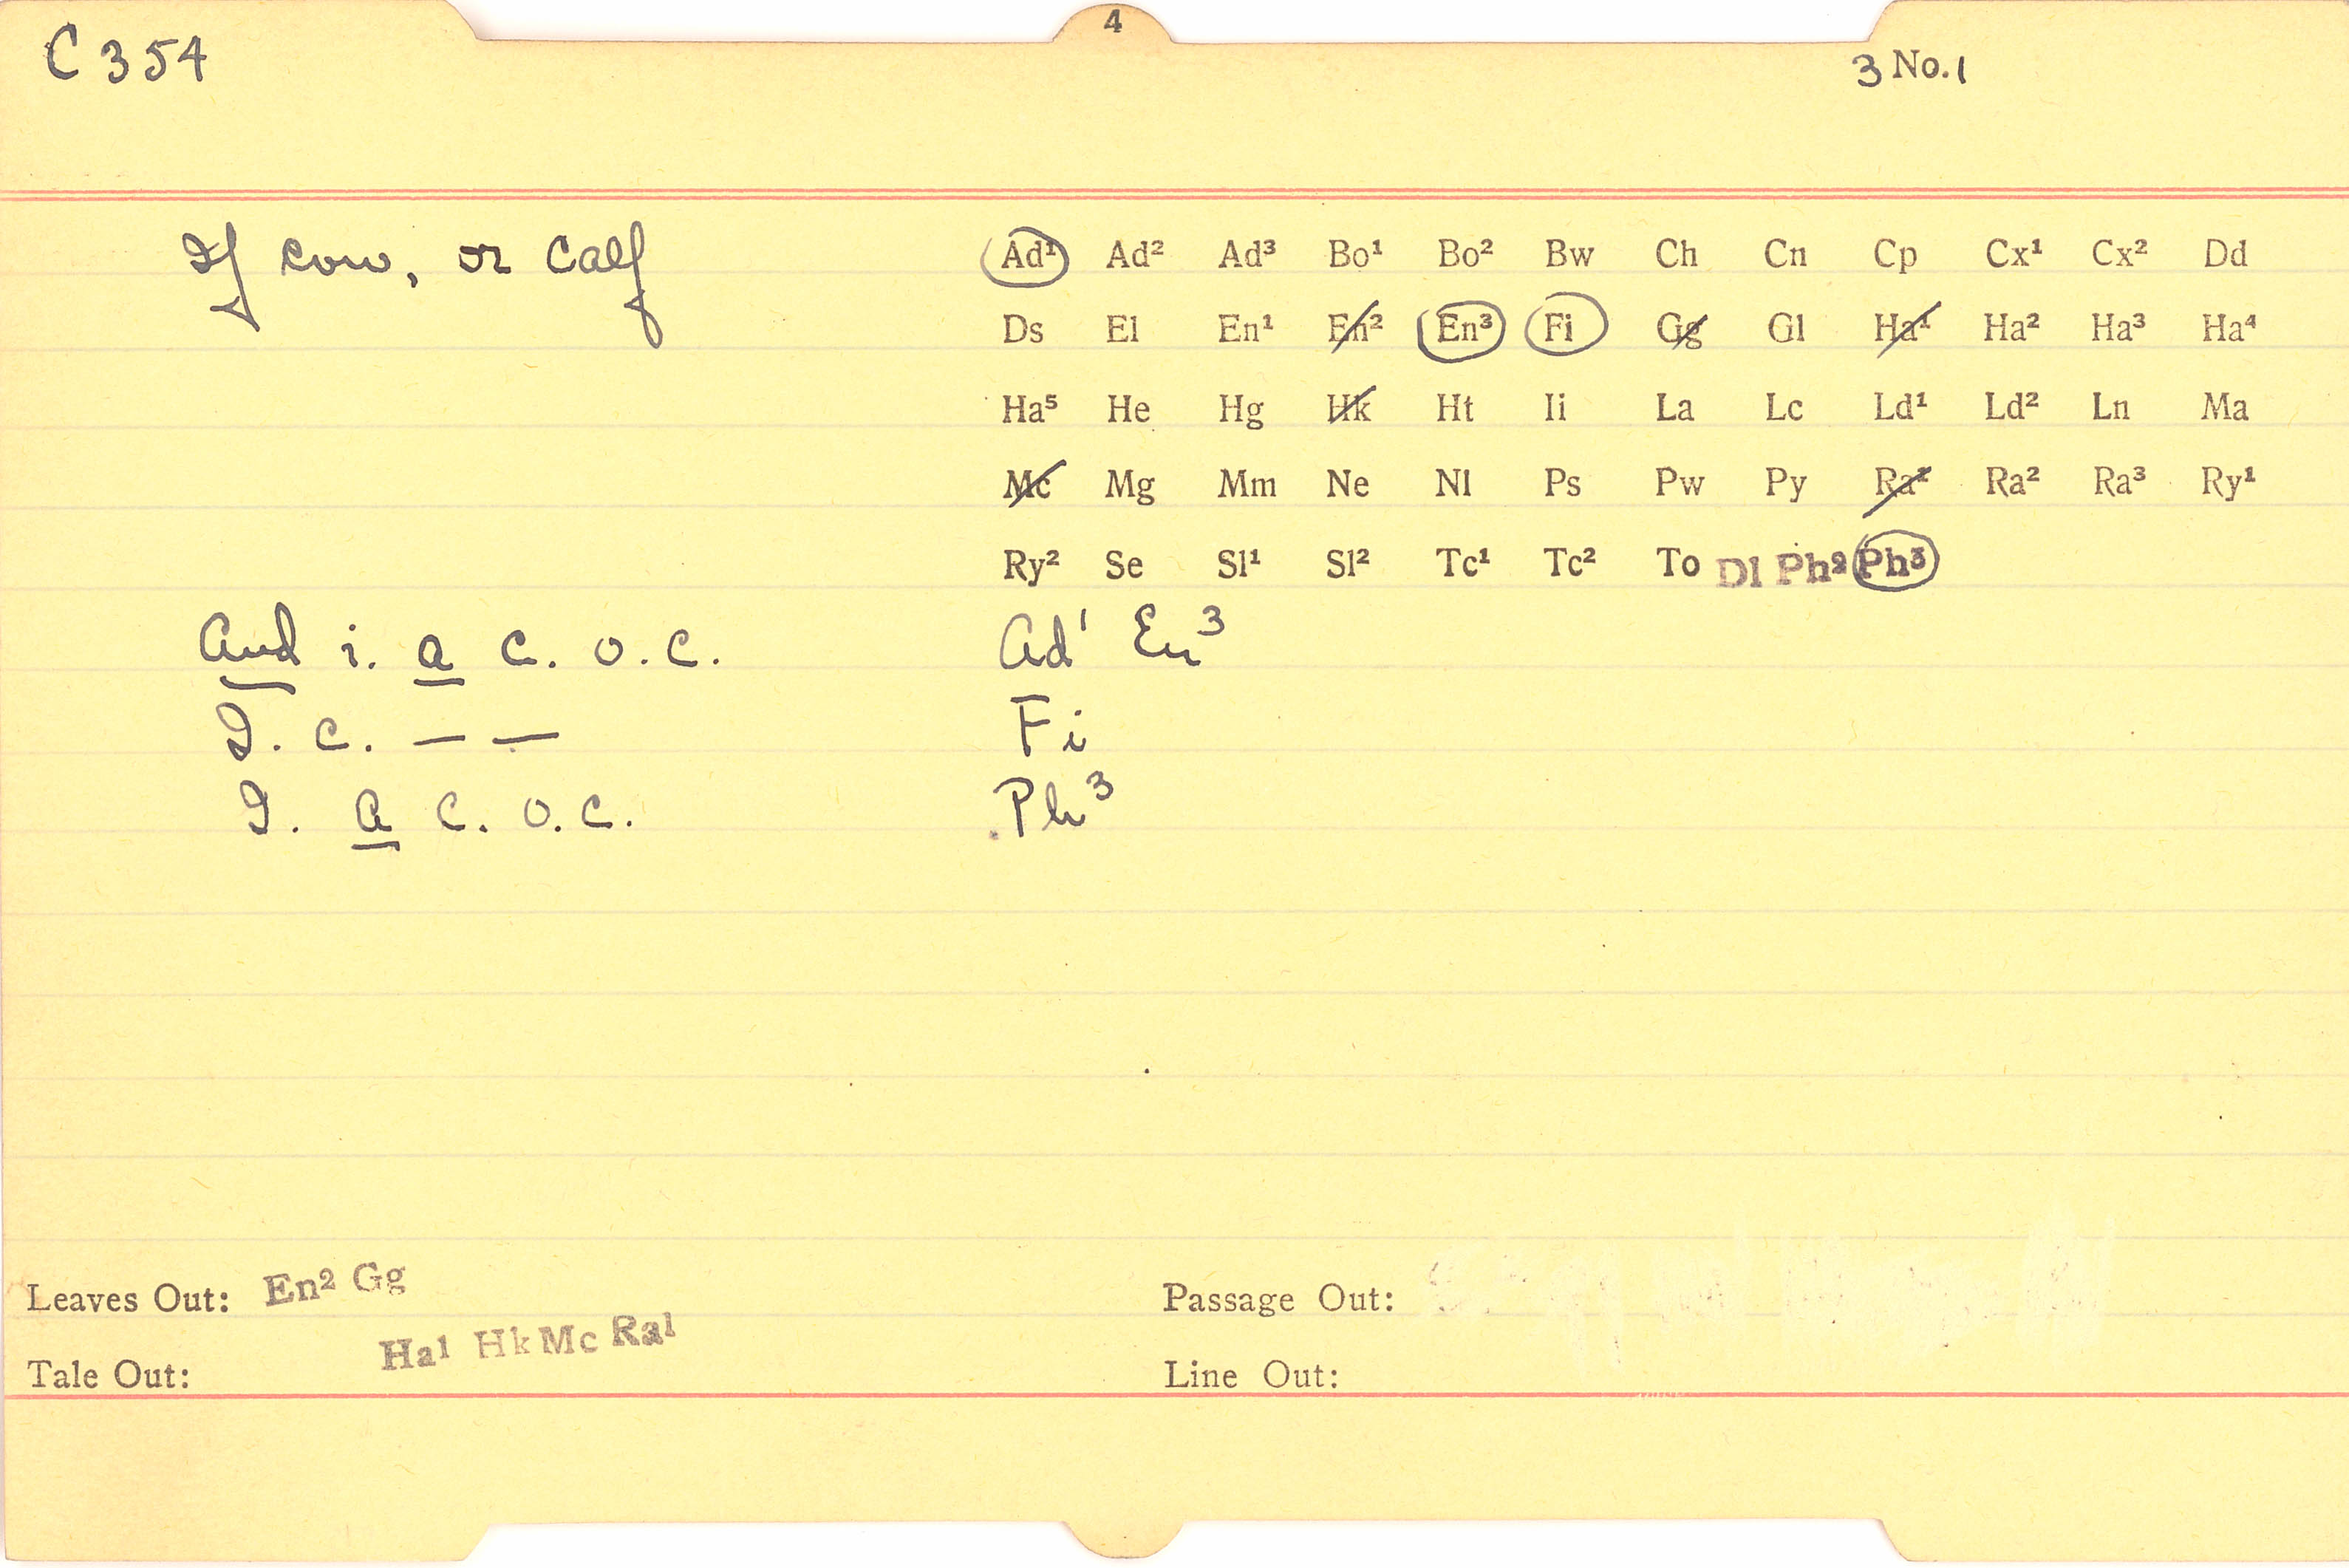 4
C 354
3 No. 1
If cow, or calf
Ad¹ Ad² Ad³ Bo¹ Bo² Bw Ch Cn Cp Cx¹ Cx² Dd
Ds El En¹ En² En³ Fi Gg Gl Ha¹ Ha² Ha³ Ha⁴
Ha⁵ He Hg Hk Ht Ii La Lc Ld¹ Ld² Ln Ma
Mc Mg Mm Ne Nl Ps Pw Py Ra¹ Ra² Ra³ Ry¹
Ry² Se Sl¹ Sl² Tc¹ Tc² To Dl Ph² Ph³
And i. a c. o. c. Ad¹ En³
I. c. — — Fi
I. a c. o. c. Ph³
Leaves Out: En² Gg
Passage Out:
Ha¹ Hk Mc Ra¹
Tale Out:
Line Out: